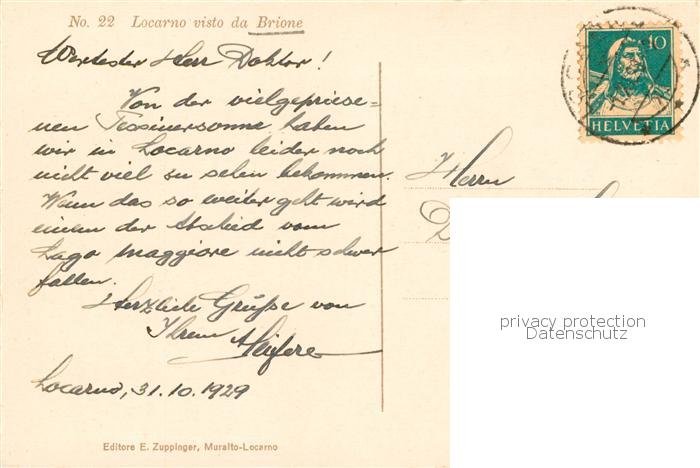 No. 22 Locarno visto da Brione
Wertester Herr Doktor!
Von der vielgepriese-
nen Tessinersonne haben
wir in Locarno leider noch
nicht viel zu sehen bekommen.
Wenn das so weiter geht wird
einem der Abschied vom
Lago maggiore nicht schwer
fallen.
Herzliche Grüße von
Ihrem
Locarno, 31.10.1929
Editore E. Zuppinger, Muralto-Locarno
10
HELVETIA
Herrn
privacy protection
Datenschutz